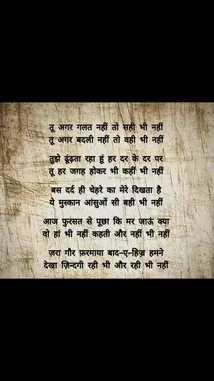 तू अगर गलत नहीं तो सही भी नहीं
तू अगर बदली नहीं तो वही भी नहीं
तुझे ढूंढ़ता रहा हूं हर दर के दर पर
तू हर जगह होकर भी कहीं भी नहीं
बस दर्द ही चेहरे का मेरे दिखता है
ये मुस्कान आंसुओं सी बही भी नहीं
आज फुरसत से पूछा कि मर जाऊं क्या
वो हां भी नहीं कहती और नहीं भी नहीं
ज़रा गौर फ़रमाया बाद-ए-हिज्र हमने
देखा ज़िन्दगी रही भी और रही भी नहीं